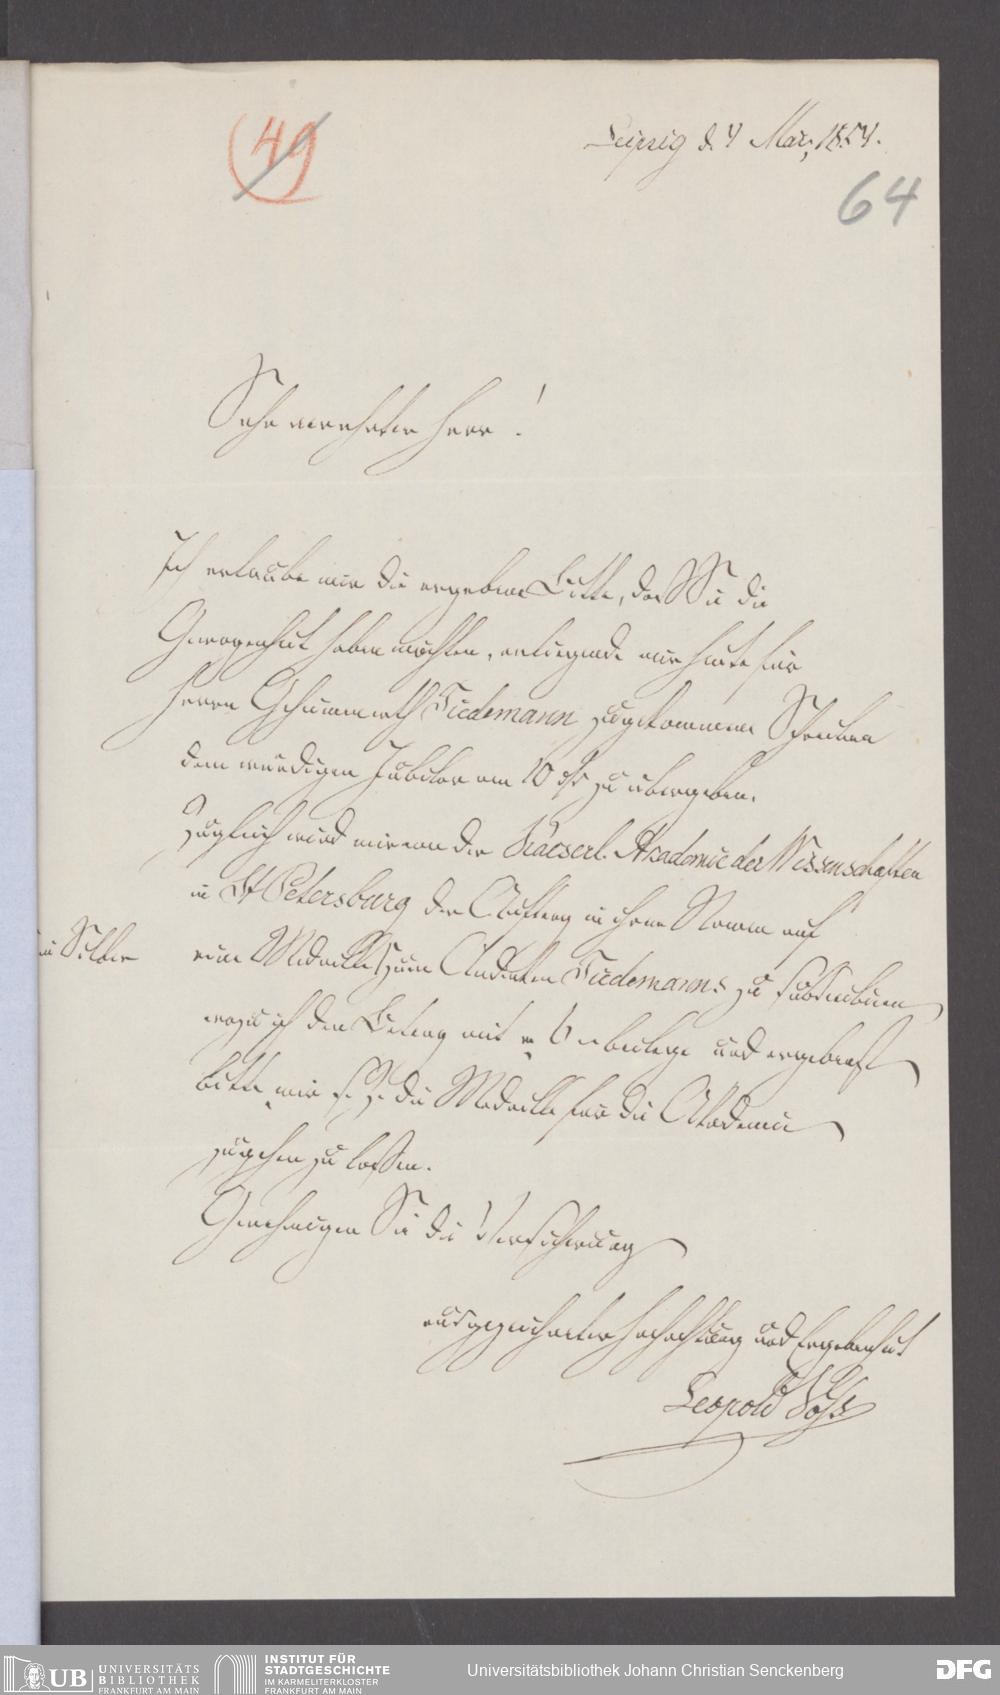 (49
Leipzig d. 4 März 1854.
64
Sehr verehrter Herr!
Ich erlaube mir die ergebene Bitte, daß Sie die
Gewogenheit haben möchten, anliegende mir heute für
Herrn Geheimrath Tiedemann zugekommene Schreiben
dem würdigen Jubilar am 10 dſ zu übergeben.
Zugleich wird mir von der Kaiserl. Akademie der Wissenschaften
in St Petersburg der Auftrag in ihrem Namen auf
in Silber
eine Medaille zum Andenken Tiedemanns zu subscribiren
wozu ich den Betrag mit 6 beilege und ergebenst
bitte, mir s. Z. die Medaille für die Akademie
zugehen zu lassen.
Genehmigen Sie die Versicherung
ausgezeichneter Hochachtung und Ergebenheit
Leopold Voß
UB UNIVERSITÄTS
BIBLIOTHEK
FRANKFURT AM MAIN
INSTITUT FÜR
STADTGESCHICHTE
IM KARMELITERKLOSTER
FRANKFURT AM MAIN
Universitätsbibliothek Johann Christian Senckenberg
DFG